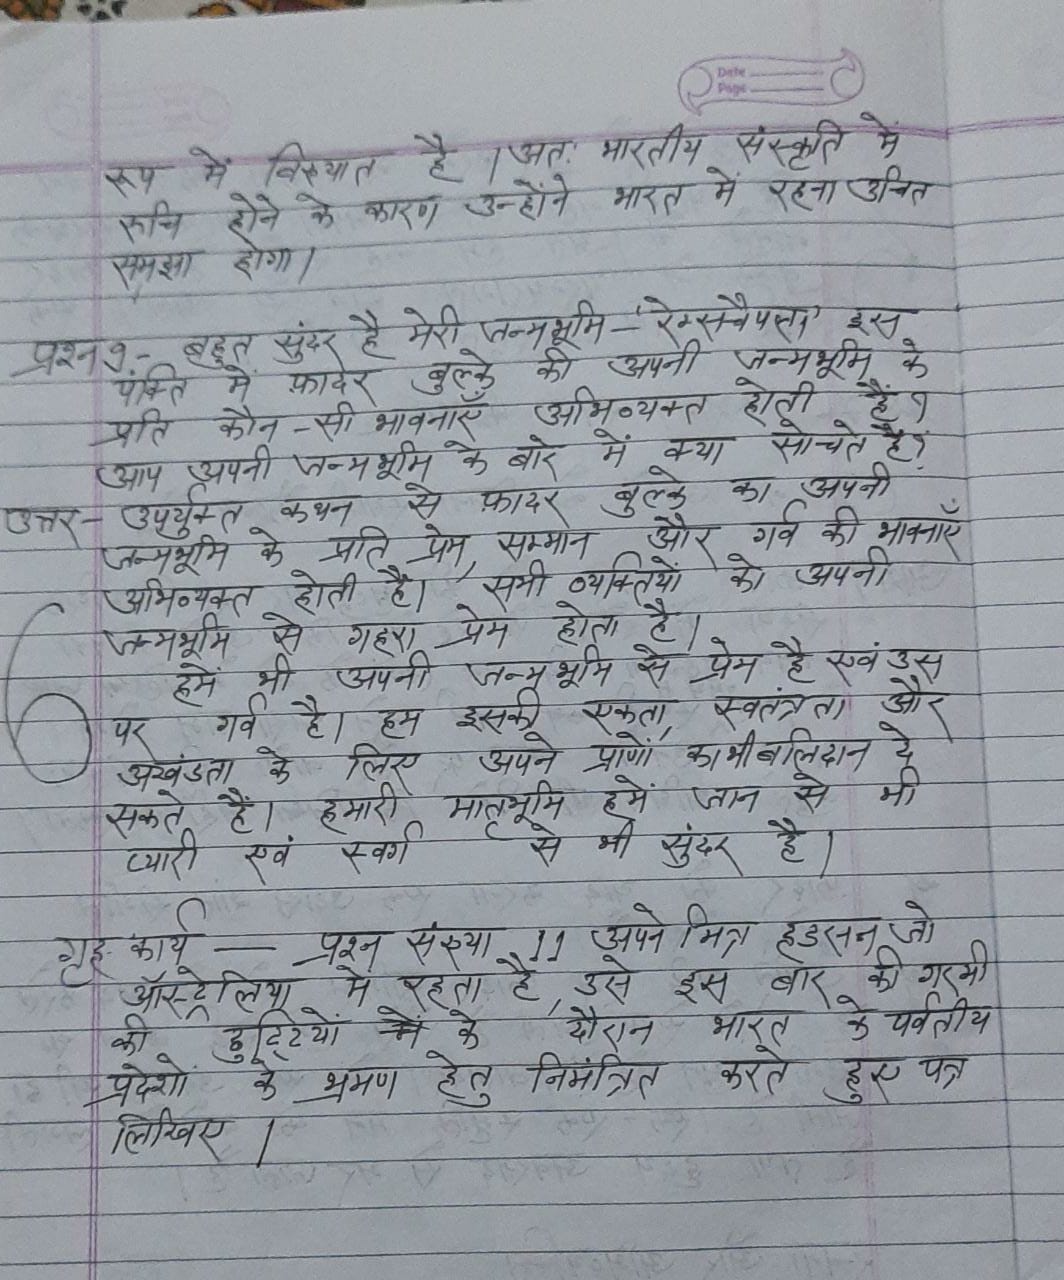 Date
Page
रूप में विख्यात है । अतः भारतीय संस्कृति में
रुचि होने के कारण उन्होंने भारत में रहना उचित
समझा होगा।
प्रश्न 9- बहुत सुंदर है मेरी जन्मभूमि - 'रेम्सचैपल।' इस
पंक्ति में फ़ादर बुल्के की अपनी जन्मभूमि के
प्रति कौन-सी भावनाएँ अभिव्यक्त होती हैं?
आप अपनी जन्मभूमि के बारे में क्या सोचते हैं?
उत्तर- उपर्युक्त कथन से फ़ादर बुल्के का अपनी
जन्मभूमि के प्रति प्रेम, सम्मान और गर्व की भावनाएँ
अभिव्यक्त होती है। सभी व्यक्तियों को अपनी
जन्मभूमि से गहरा प्रेम होता है।
हमें भी अपनी जन्मभूमि से प्रेम है एवं उस
पर गर्व है। हम इसकी एकता, स्वतंत्रता और
अखंडता के लिए अपने प्राणों का भी बलिदान दे
सकते हैं। हमारी मातृभूमि हमें जान से भी
प्यारी एवं स्वर्ग से भी सुंदर है।
गृह कार्य — प्रश्न संख्या 11 अपने मित्र हडसन जो
ऑस्ट्रेलिया में रहता है, उसे इस बार की गरमी
की छुट्टियों के दौरान भारत के पर्वतीय
प्रदेशों के भ्रमण हेतु निमंत्रित करते हुए पत्र
लिखिए ।